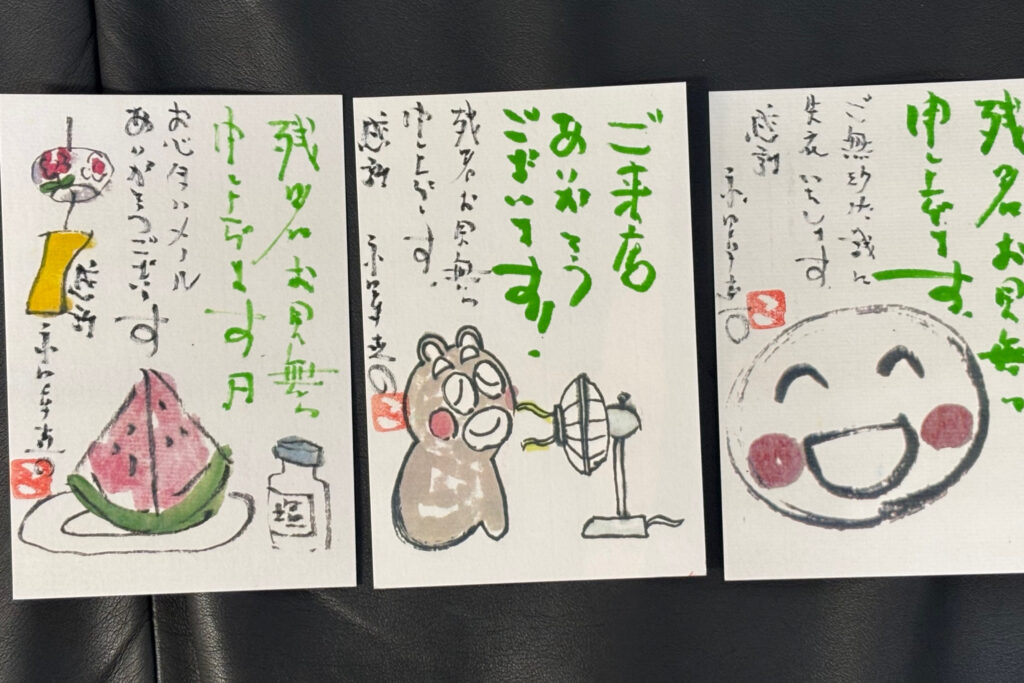 残暑お見舞い
申し上げます
メール
ありがとうございます
感謝
塩
ご来店
ありがとう
ございます。
残暑お見舞い
申し上げます。
感謝
残暑お見舞い
申し上げます。
ご無沙汰誠に
失礼いたします
感謝